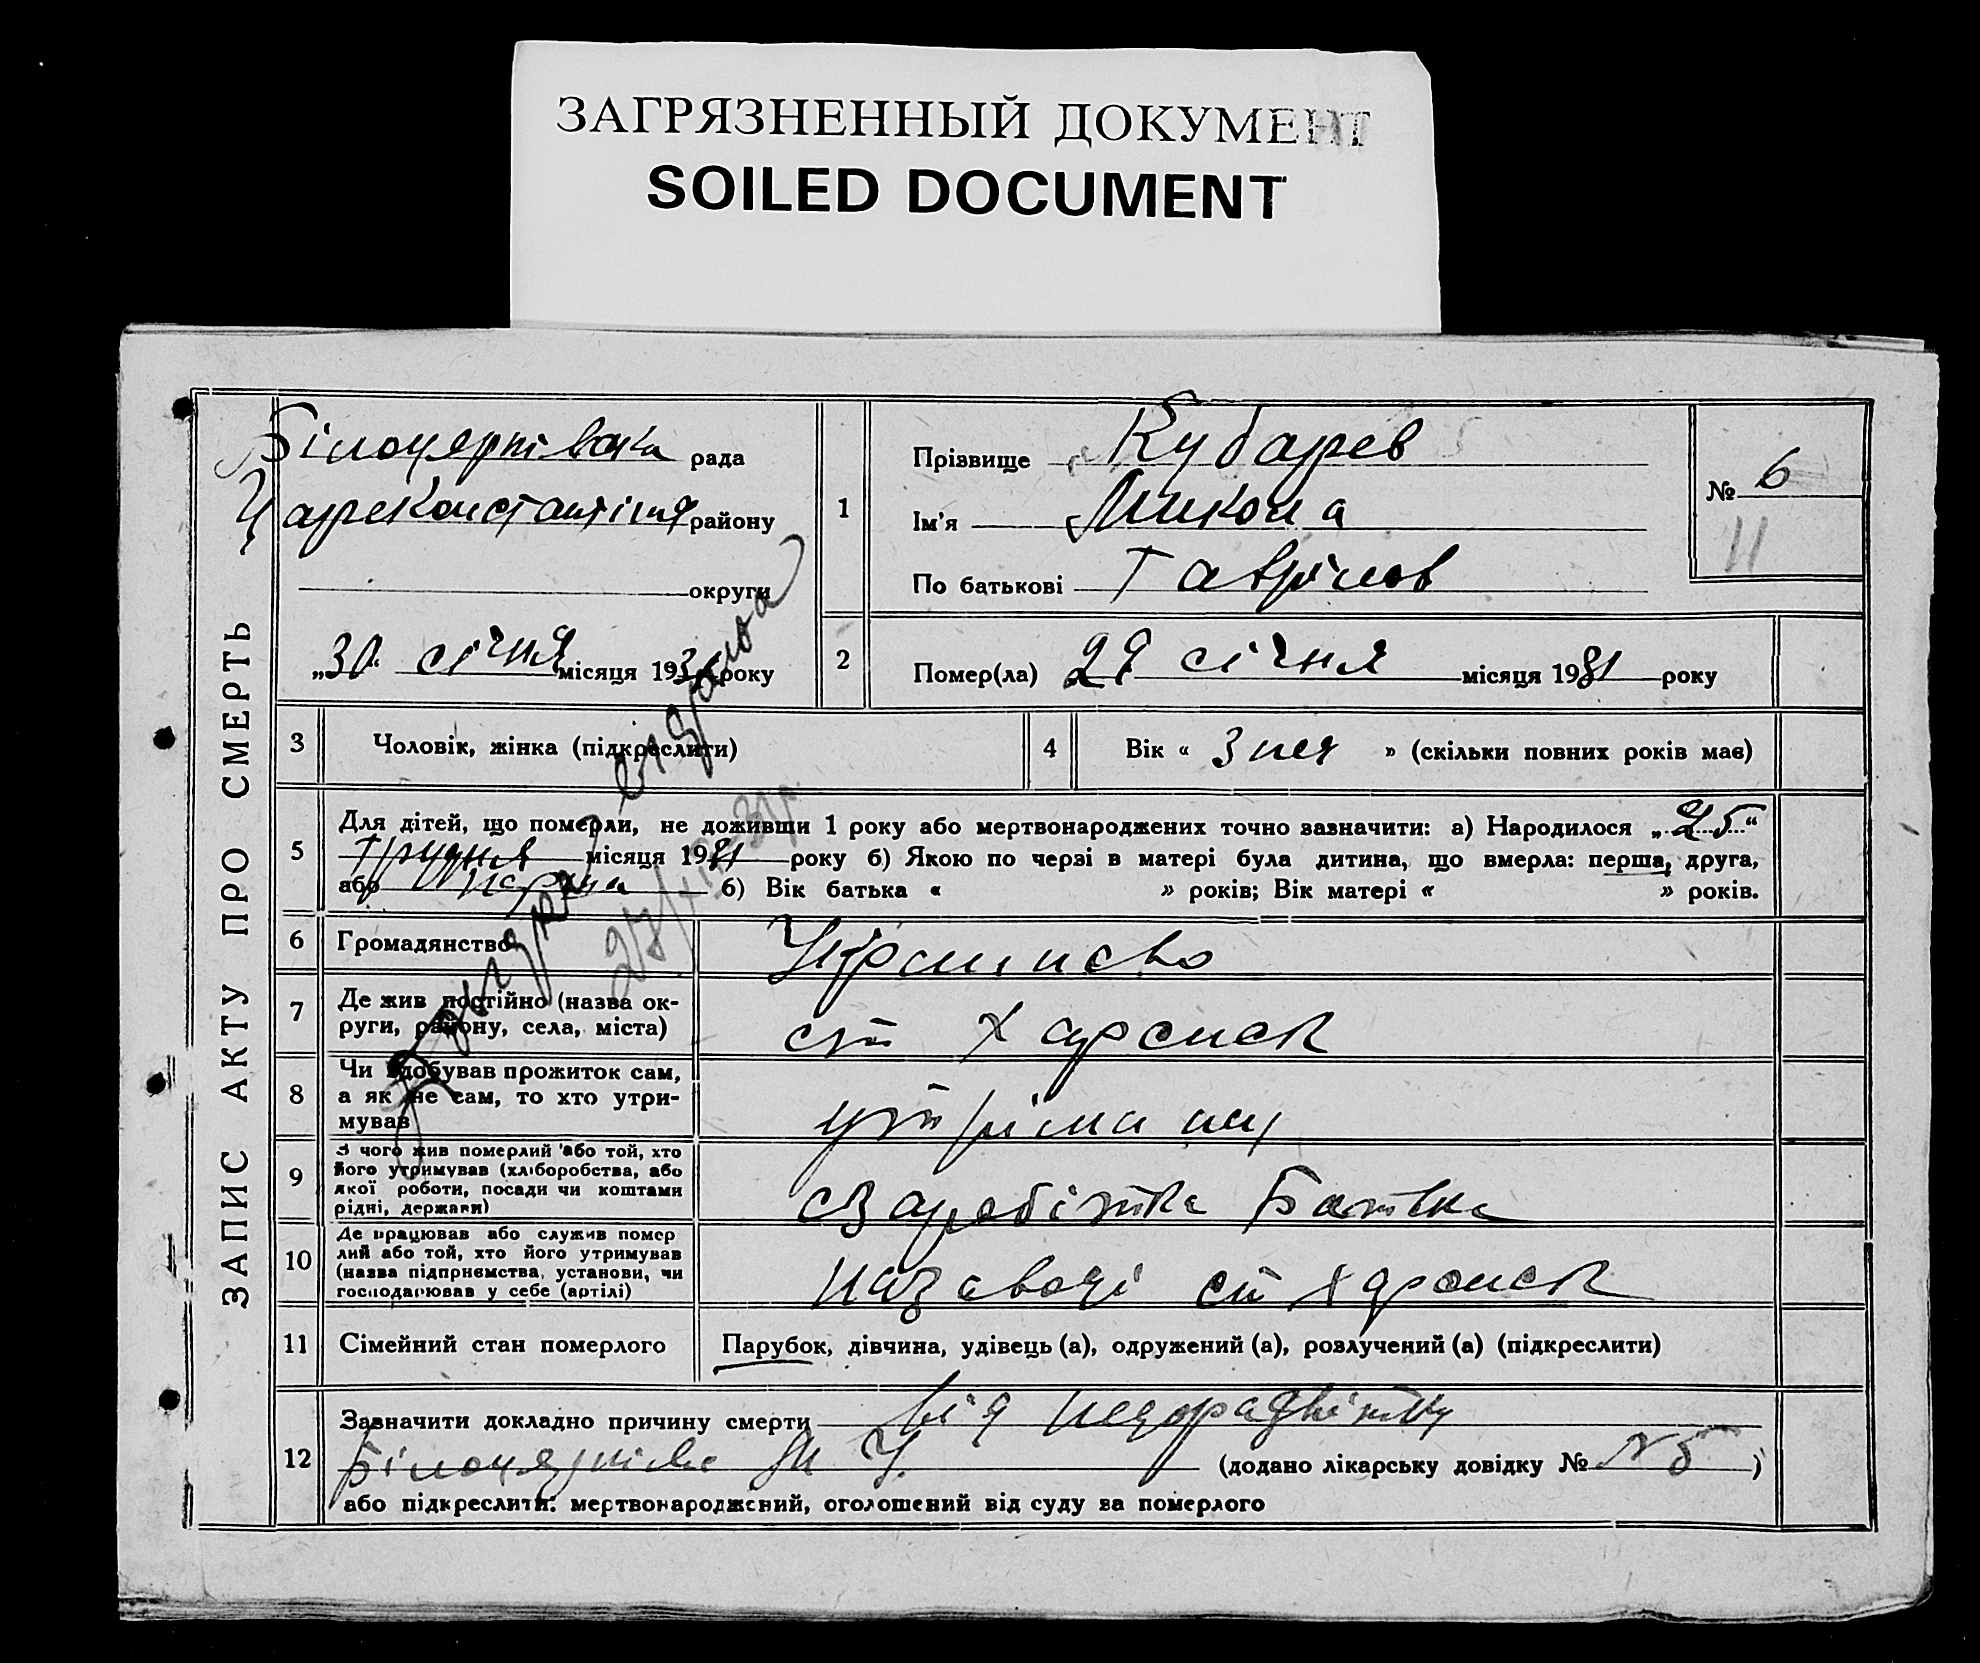 ЗАГРЯЗНЕННЫЙ ДОКУМЕНТ
SOILED DOCUMENT
ЗАПИС АКТУ ПРО СМЕРТЬ
рада
району
округи
„30“ січня місяця 1931 року
1
Прізвище Кубарев
Ім'я Микола
По батькові Гаврілов
№ 6
11
2
Помер(ла) 29 січня місяця 1931 року
3
Чоловік, жінка (підкреслити)
4
Вік « 3 » (скільки повних років має)
5
Для дітей, що померли, не доживши 1 року або мертвонароджених точно зазначити: а) Народилося „25“
Грудня місяця 19 року б) Якою по черзі в матері була дитина, що вмерла: перша, друга,
або б) Вік батька « » років; Вік матері « » років.
6
Громадянство
7
Де жив постійно (назва ок-
руги, району, села, міста)
ст
8
Чи здобував прожиток сам,
а як не сам, то хто утри-
мував
9
З чого жив померлий або той, хто
його утримував (хліборобства, або
якої роботи, посади чи коштами
рідні, держави)
Заробітка Батька
10
Де працював або служив помер
лий або той, хто його утримував
(назва підприємства, установи, чи
господарював у себе (артілі)
на заводі ст
11
Сімейний стан померлого
Парубок, дівчина, удівець (а), одружений (а), розлучений (а) (підкреслити)
12
Зазначити докладно причину смерти від
(додано лікарську довідку № N 5)
або підкреслити: мертвонароджений, оголошений від суду за померлого